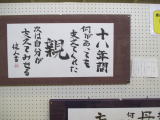 十八年間
何があっても
支えてくれた
親
次は自分が
支えてみせる